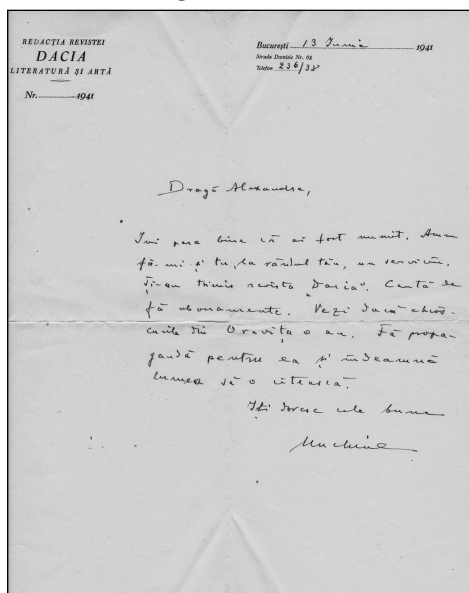 REDACȚIA REVISTEI
DACIA
LITERATURĂ ȘI ARTĂ
Nr. 1941
București 13 Iunie 1941
Strada Dionisie Nr. 65
Telefon 236/38
Dragă Alexandre,
Îmi pare bine că ai fost numit. Acum
fă-mi și tu, la rândul tău, un serviciu.
Ți-am trimis revista „Dacia". Caută de
fă abonamente. Vezi dacă chioș-
curile din Oravița o au. Fă propa-
gandă pentru ea și îndeamnă
lumea să o citească.
Îți doresc cele bune